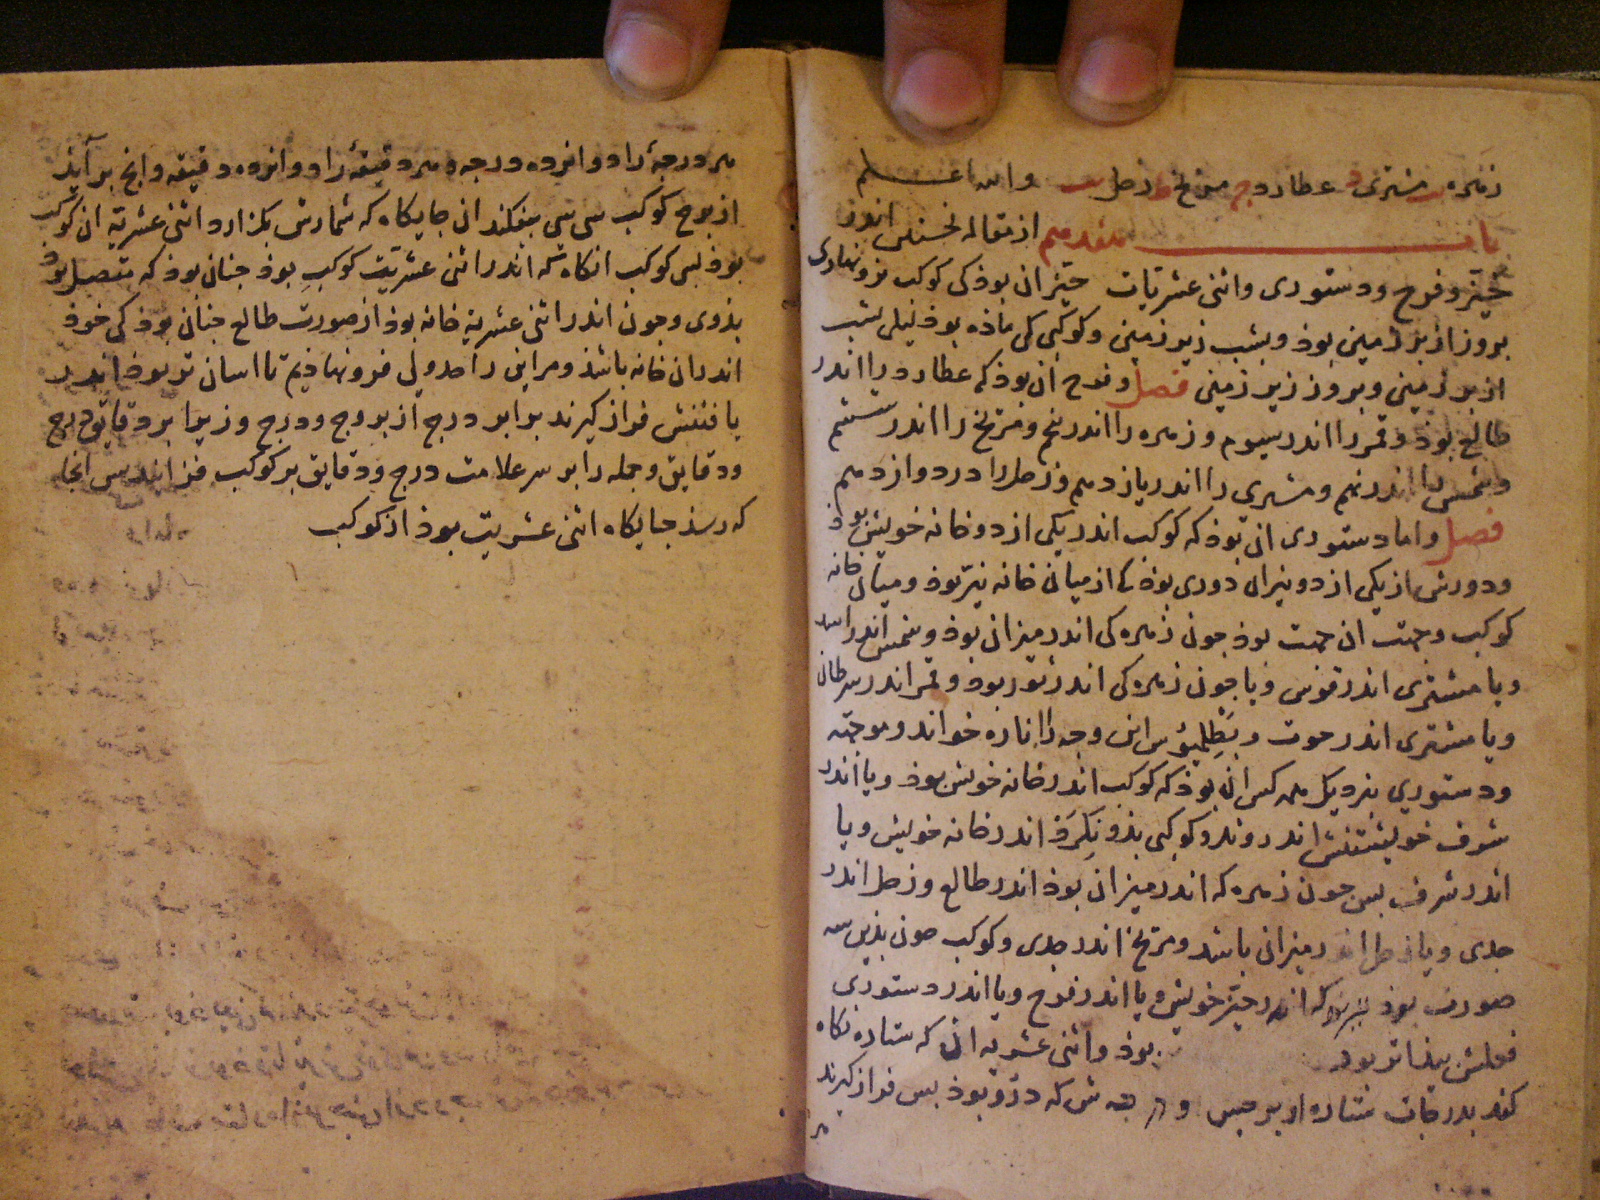 زهره ب مشتری د عطارد ج مریخ ط زحل ب والله اعلم
باب هفدهم از مقاله نخستین اندر
حیّز و فرح و دستوری و اثنی عشریّات حیّز آن بوذ کی کوکب نر و نهاری
بروز از بر زمین بوذ و بشب زیر زمین و کوکبی کی ماذه بوذ لیلی بشب
از بر زمین و بروز زیر زمین فصل و فرح آن بوذ که عطارد را اندر
طالع بوذ و قمر را اندر سیوم و زهره را اندر پنجم و مریخ را اندر ششم
و شمس را اندر نهم و مشتری را اندر یازدهم و زحل را در دوازدهم
فصل و اما دستوری آن بوذ که کوکب اندر یکی از دو خانه خویش بوذ
و دورش از یکی از دو نیران دوری بوذ که از میان خانه نیّر بوذ و میان خانه
کوکب و جهت آن جهت بوذ چون زهره کی اندر میزان بوذ و شمس اندر اسد
و یا مشتری اندر قوس و یا چون زهره کی اندر ثور بوذ و قمر اندر سرطان
و یا مشتری اندر حوت و بطلمیوس این وجه را اناره خواند و موجته
و دستوری نزدیک همه کس آن بوذ که کوکب اندر خانه خویش بوذ و یا اندر
شرف خویشتنش اندر وتد و کوکبی بذو نِگرَذ اندر خانه خویش و یا
اندر شرف پس چون زهره که اندر میزان بوذ اندر طالع و زحل اندر
جدی و یا زحل اندر میزان باشد و مریخ اندر جدی و کوکب چون بذین سه
صورت بوذ که اندر حیّز خویش و یا اندر فرح و یا اندر دستوری
فعلش پیذاتر بوذ بوذ و اثنی عشریه آن که ستاره نگاه
کند بدرجات ستاره از برجیس و شش که درو بوذ پس فراز گیرند
هر
هر درجهٔ را دوانزده درجه و هر دقیقهٔ را دوانزده دقیقه و آنچ برآید
از برج کوکب سی سی بیفکند آن جایگاه که شمارش بگزارد اثنی عشریّه آن کوکب
بوذ پس کوکب آنگاه که اندر اثنی عشریّت کوکب بوذ چنان بوذ که متصل بوذ
بذوی و چون اندر اثنی عشریه خانه بوذ از صورت طالع چنان بوذ کی خوذ
اندران خانه باشد و مر این را جدولی فرو نهاذیم تا آسان تر بوذ اندر
یافتنش فراز گیرند برابر درج از بروج و درج و زیرا بر دقایق درج
و دقایق و جمله را بر سر علامت درج و دقایق بر کوکب فزایند پس آنجا
که رسد جایگاه اثنی عشریت بوذ از کوکب